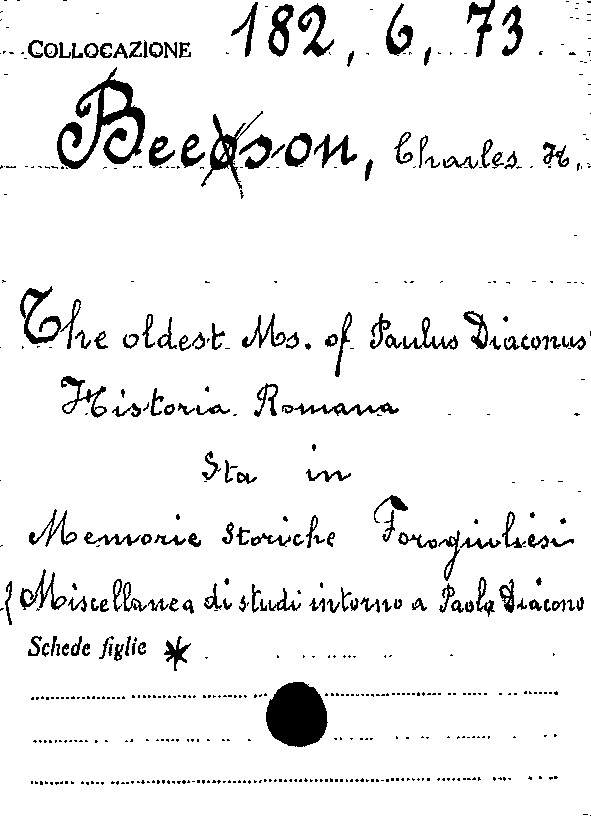 COLLOCAZIONE 182, 6, 73.
Beeson, Charles H.
The oldest Ms. of Paulus Diaconus'
Historia Romana
Sta in
Memorie Storiche Forogiuliesi
{Miscellanea di studi intorno a Paolo Diacono
Schede figlie *